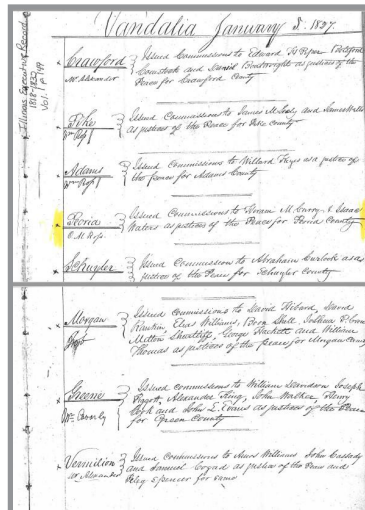 Illinois Executive Record
1818-1832
Vol. 1 p. 149
Vandalia January 5. 1827.
Crawford
Issued Commissions to Edward N
Comstock and David as justices of the
Peace for Crawford County
Pike
Issued Commissions to James M. and James
as justices of the Peace for Pike County
Adams
Issued Commissions to Willard Keyes as a justice of
the peace for Adams County
Peoria
Issued Commissions to Hiram M. Curry & Isaac
Waters as justices of the Peace for Peoria County
Schuyler
Issued Commissions to Abraham Carlock as a
justice of the Peace for Schuyler County
Morgan
Issued Commissions to David Hibard, David
Rankin, Elias Williams, Boon Hall, Joshua P. Crow
Milton Shurtliff, George Hackett and William
Thomas as justices of the peace for Morgan County
Greene
Issued Commissions to William Davidson Joseph
Piggott, Alexander King, John Walker, Henry
Cook and John L. Evans as justices of the Peace
for Green County
Vermilion
Wm. Alexander
Issued Commissions to Amos Williams John Cassedy
and Samuel as justices of the Peace and
Spencer for same